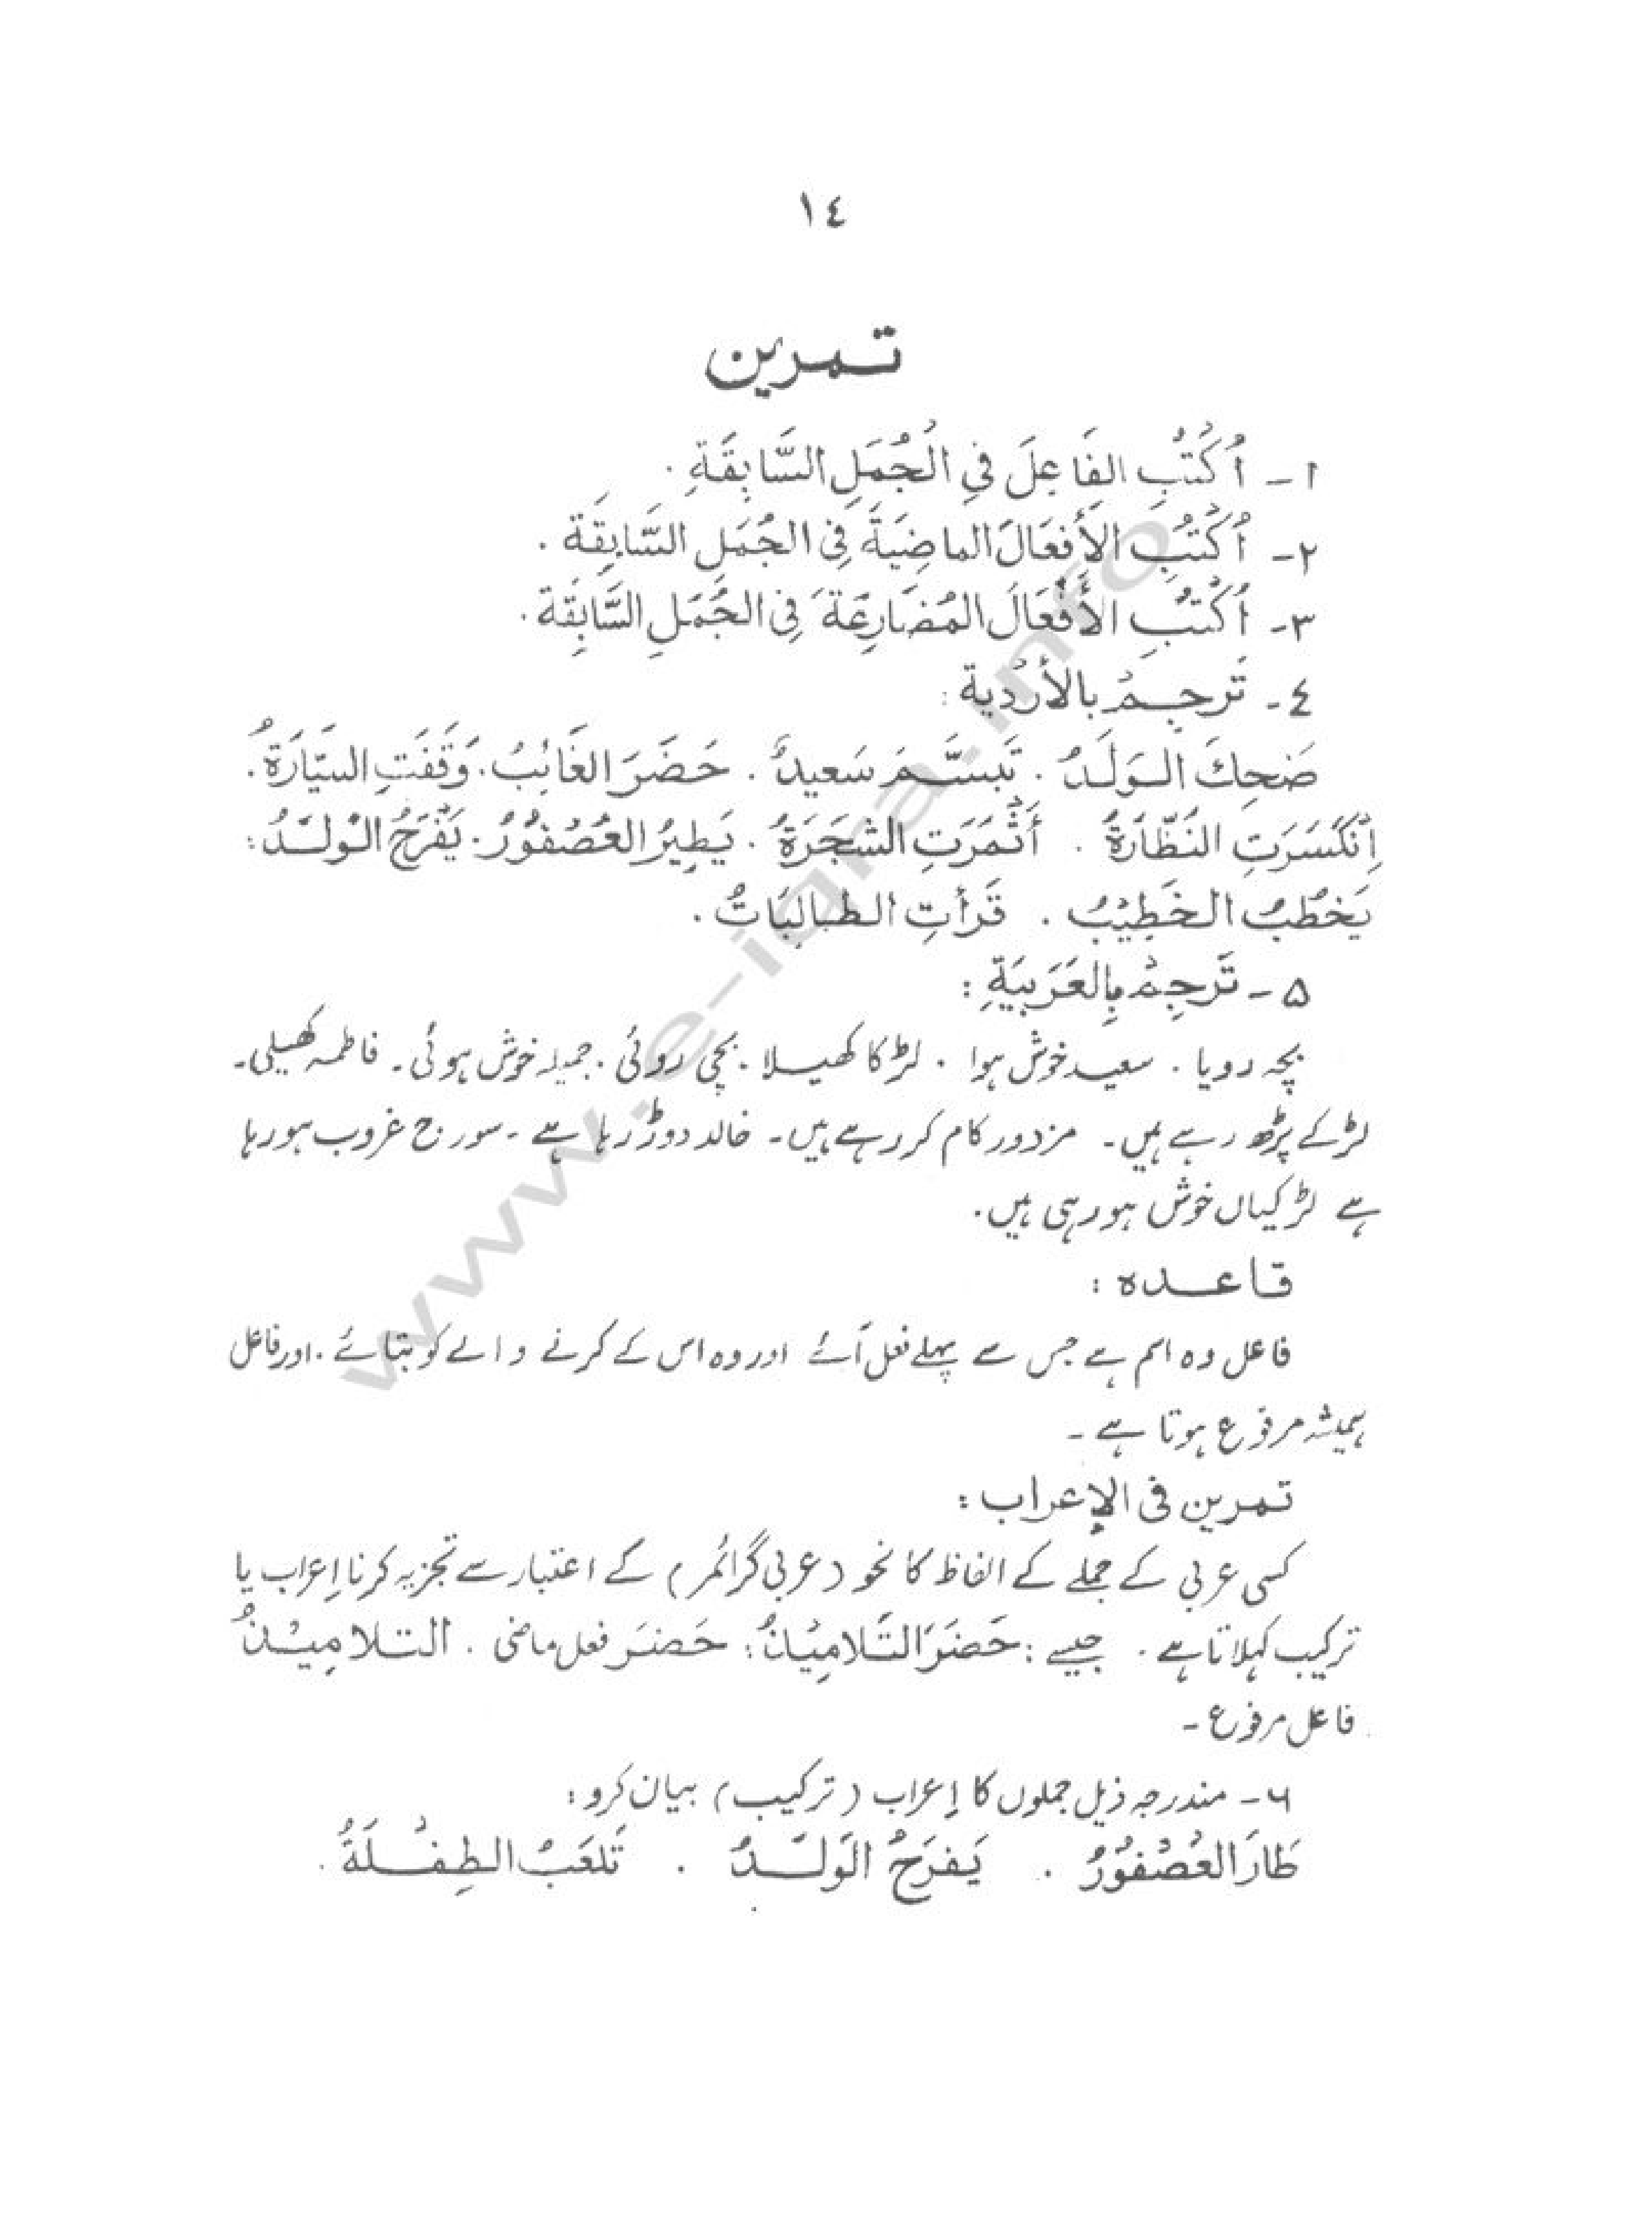 ١٤
تمرين
١- اُكْتُبِ الفَاعِلَ فِي الْجُمَلِ السَّابِقَةِ.
٢- اُكْتُبِ الأَفعَالَ الماضِيَةَ فِى الجُمَلِ السَّابِقَة.
٣- اُكْتُبِ الأَفْعَالَ المُضَارِعَةَ فِى الجُمَلِ السَّابِقَة.
٤- تَرجِمْ بالأرْدية:
ضَحِكَ الوَلَدُ. تَبَسَّمَ سَعيدٌ. حَضَرَ الغَائِبُ. وَقَفَتِ السَّيَّارَةُ.
اِنْكَسَرَتِ النَظَّارَةُ. أَثْمَرَتِ الشجَرَةُ. يَطِيرُ العُصْفُوْرُ. يَفْرَحُ الْوَلَدُ:
يَخطُبُ الخَطِيْبُ. قَرأتِ الطالِبَاتُ.
۵- تَرجِمْ بِالعَرَبيَةِ:
بچہ رویا. سعید خوش ہوا. لڑکا کھیلا. بچی روئی. جمیلہ خوش ہوئی۔ فاطمہ کھیلی۔
لڑکے پڑھ رہے ہیں۔ مزدور کام کررہے ہیں۔ خالد دوڑ رہا ہے۔ سورج غروب ہورہا
ہے لڑکیاں خوش ہورہی ہیں.
قاعده:
فاعل وہ اسم ہے جس سے پہلے فعل آئے اور وہ اس کے کرنے والے کو بتائے. اور فاعل
ہمیشہ مرفوع ہوتا ہے۔
تمرين فى الإعراب:
کسی عربی کے جملے کے الفاظ کا نحو (عربی گرائمر) کے اعتبار سے تجزیہ کرنا إعراب یا
ترکیب کہلاتا ہے. جیسے: حَضَرَ التَّلامِيْذُ: حَضَرَ فعل ماضی. التلامِيْذُ
فاعل مرفوع۔
۶- مندرجہ ذیل جملوں کا إعراب (ترکیب) بیان کرو:
طَارَ العُصْفُوْرُ. يَفرَحُ الَولَدُ. تَلعَبُ الطِفْلَةُ.
www.e-iqra.info